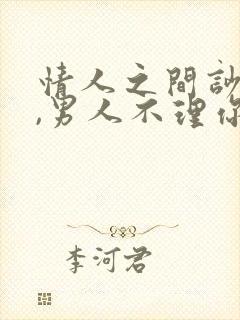 情人之間訟
,男人不理你
李河君